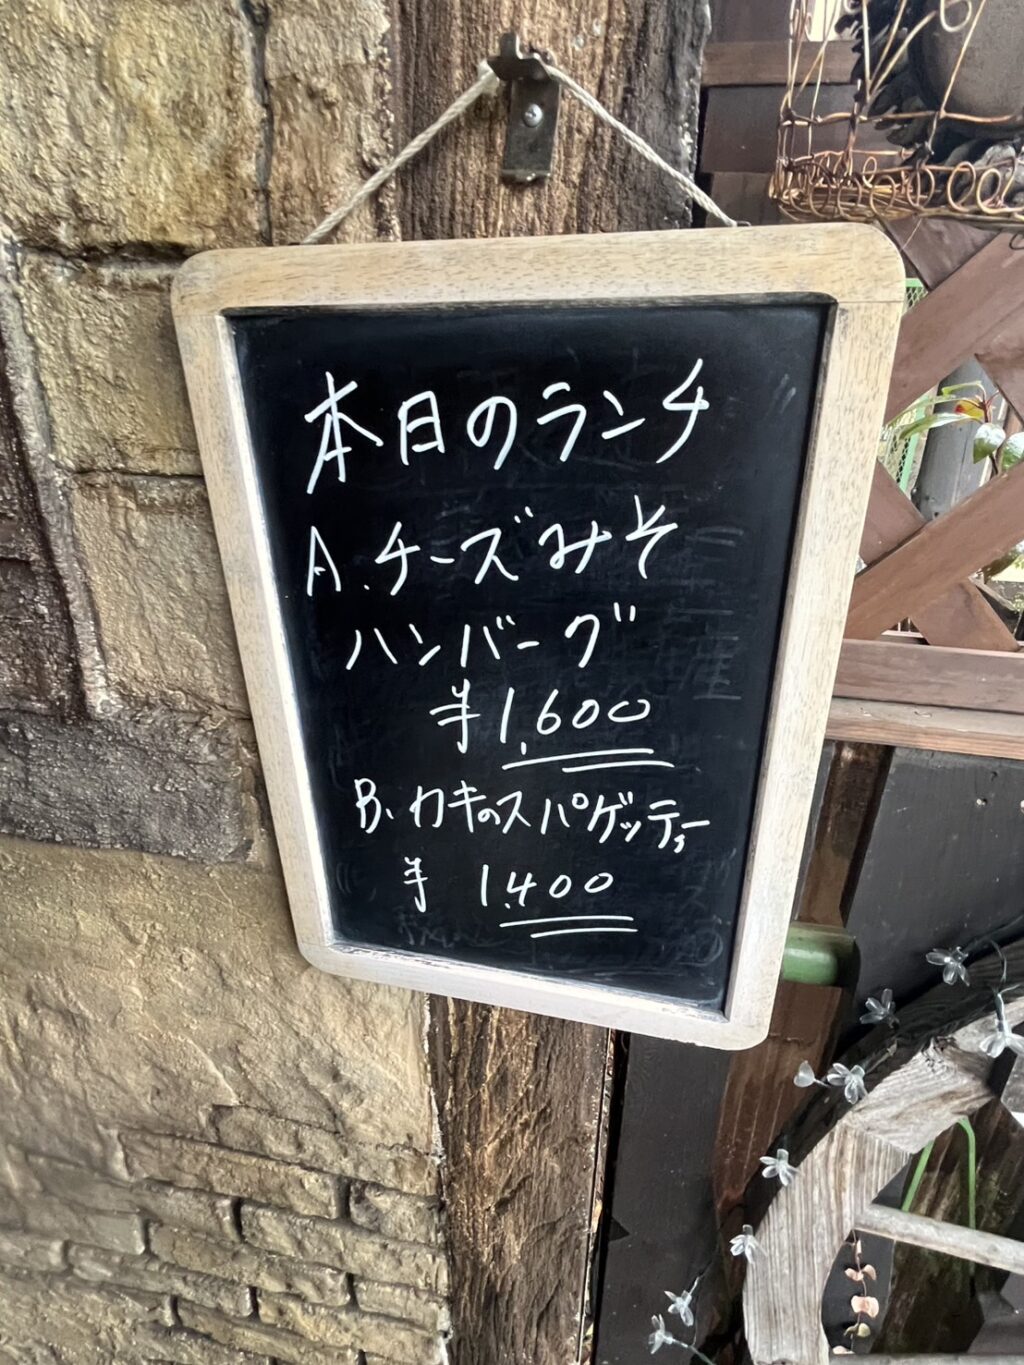 本日のランチ
A.チーズみそ
ハンバーグ
¥1,600
B、カキのスパゲッティー
¥ 1,400